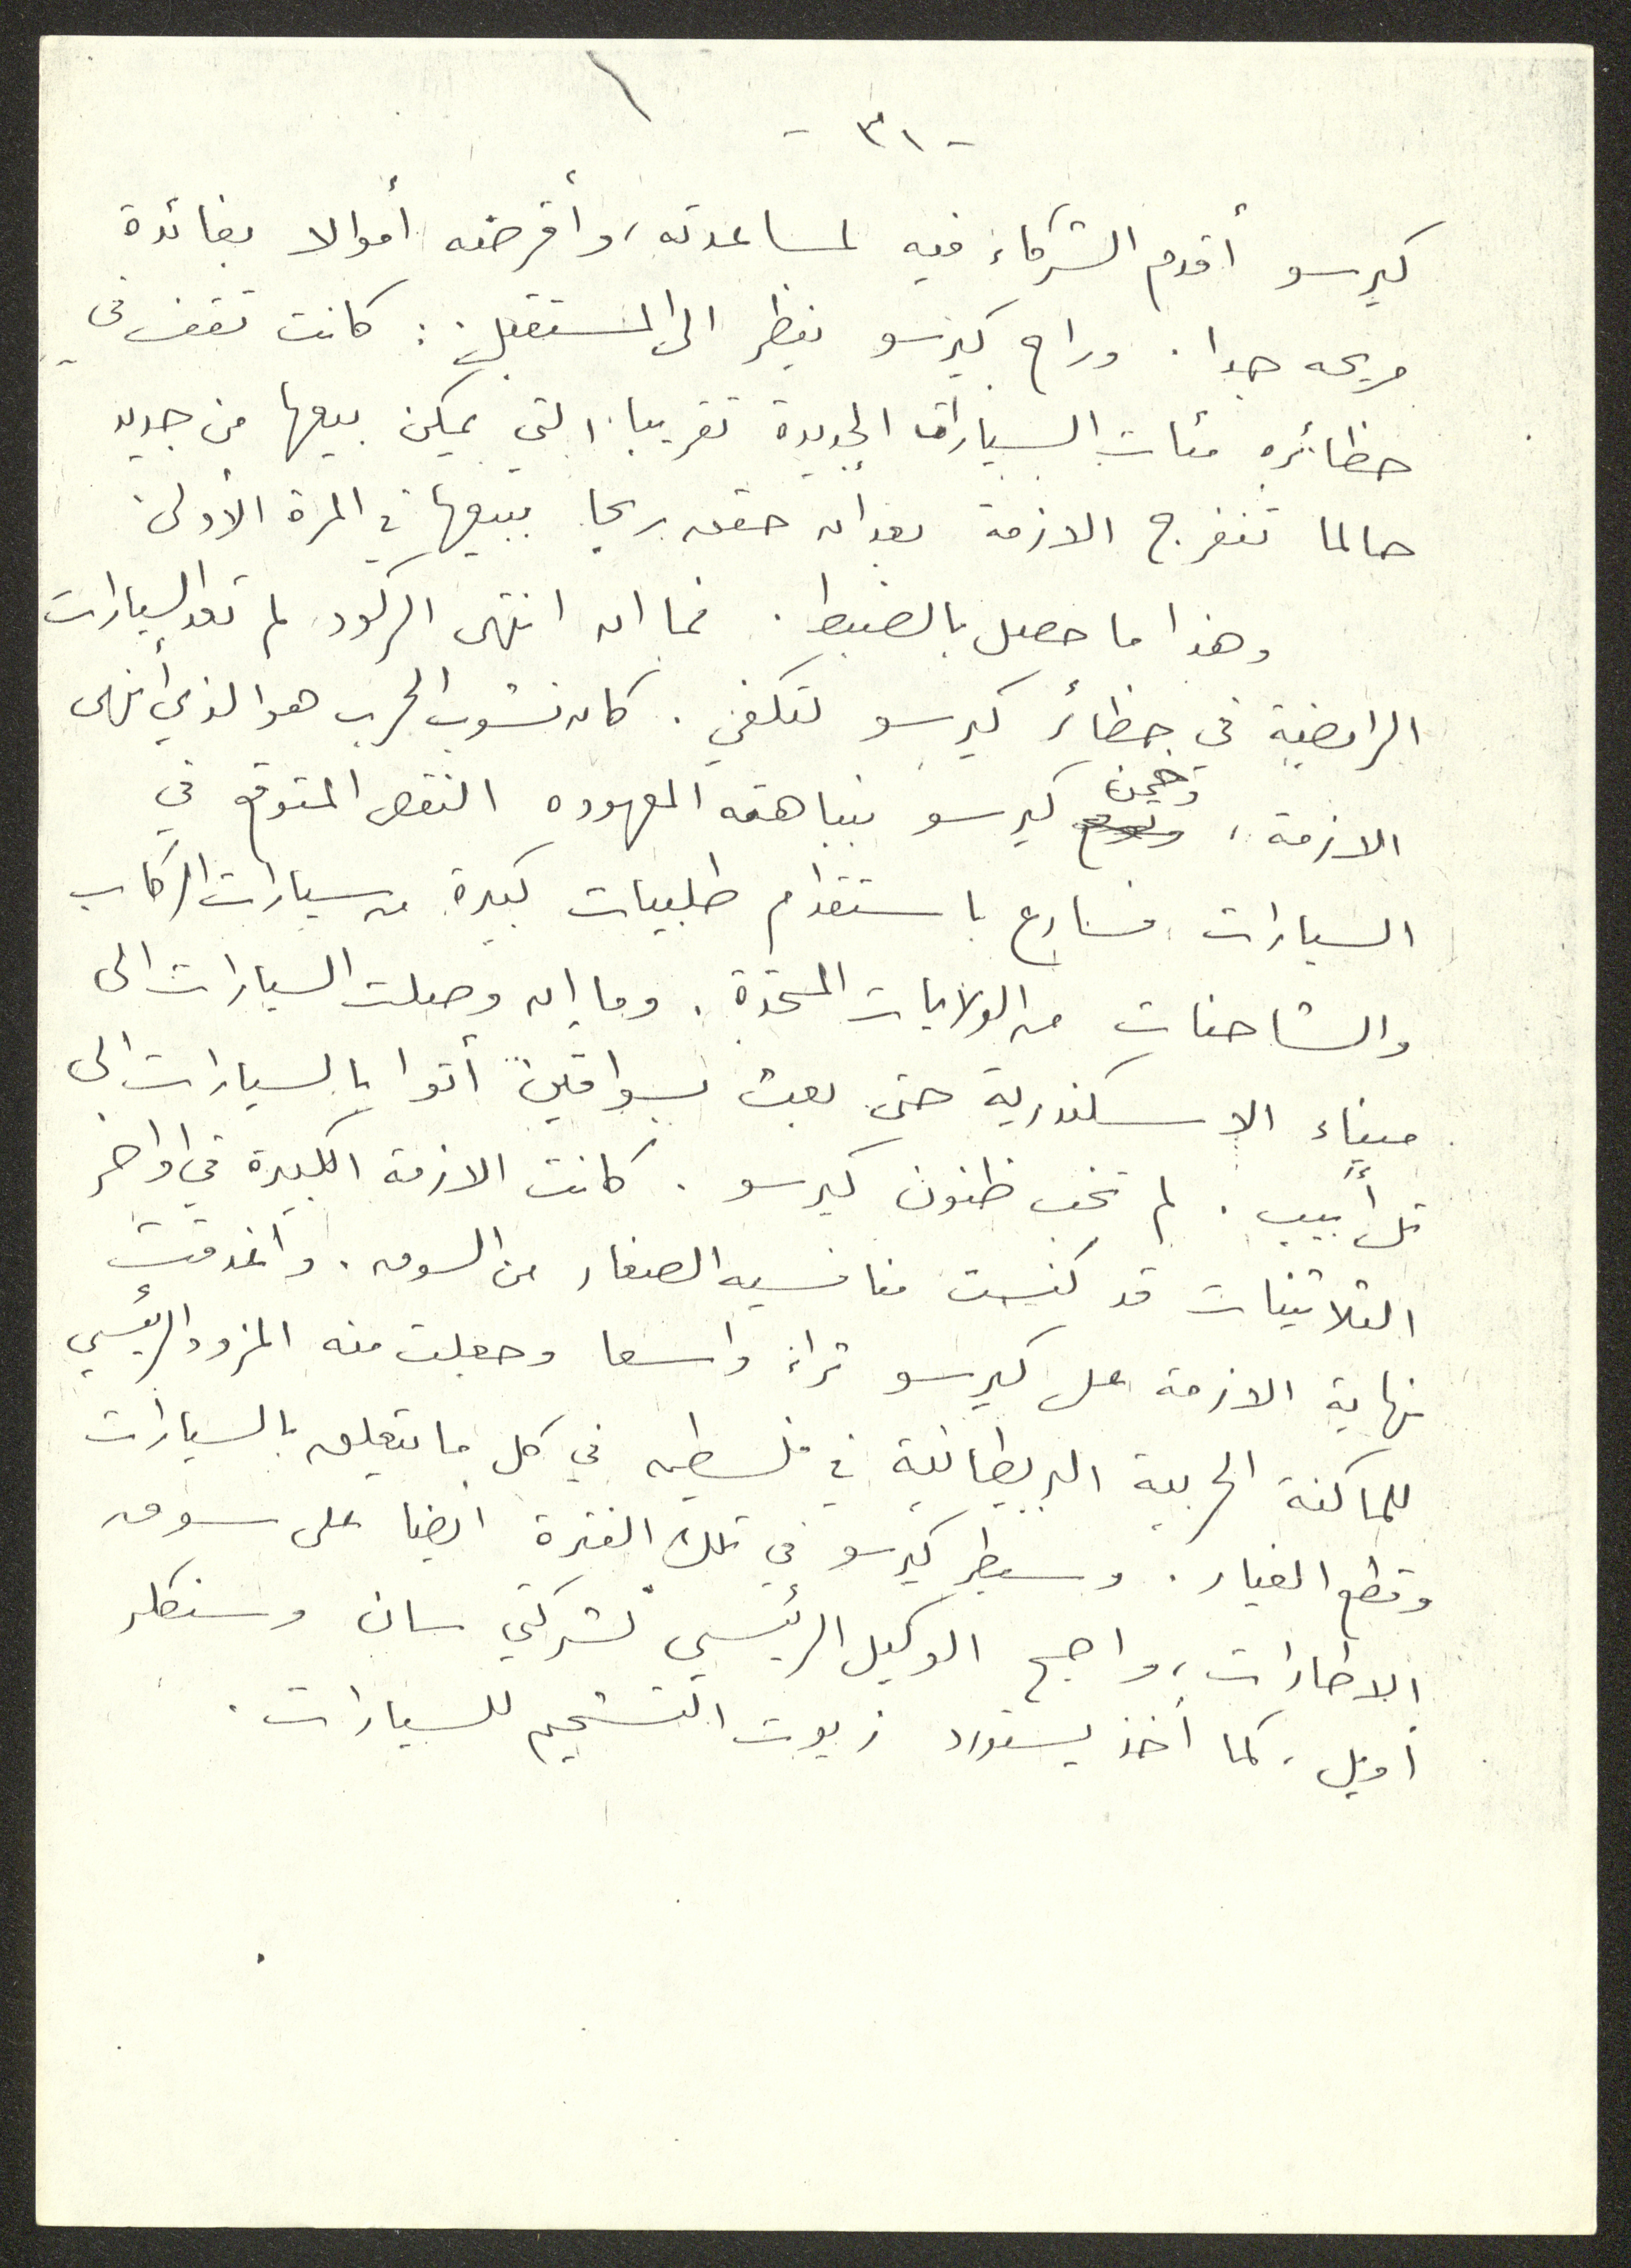 - ٣١ -
كيرسو أقدم الشركاء فيه لمساعدته، وأقرضه أموالا بفائدة
مريحه جدا. وراح كيرسو ينظر الى المستقبل: كانت تقف في
حظائره مئات السيارات الجديدة تقريبا التي يمكن بيعها من جديد
حالما تنفرج الازمة بعد ان حقق ربحا ببيعها في المرة الأولى.
وهذا ما حصل بالضبط. فما ان انتهى الركود لم تعد السيارات
الرابضة في حظائر كيرسو لتكفي. كان نشوب الحرب هو الذي أنهى
الازمة، وخمن كيرسو بنباهته المعهوده النقص المتوقع في
السيارات فسارع باستقدام طلبيات كبيرة من سيارات الركاب
والشاحنات من الولايات المتحدة. وما إن وصلت السيارات الى
ميناء الاسكندرية حتى بعث بسواقين أتوا بالسيارات الى
تل أبيب. لم تخب ظنون كيرسو. كانت الازمة الكبيرة في اواخر
الثلاثينات قد كنست منافسيه الصغار من السوق. وأغدقت
نهاية الازمة على كيرسو ثراء واسعا وجعلت منه المزود الرئيسي
للماكنة الحربية البريطانية في فلسطين في كل ما يتعلق بالسيارات
وقطع الغيار. وسيطر كيرسو في تلك الفترة ايضا على سوق
الاطارات، واصبح الوكيل الرئيسي لشركتي سان وسنكلر
أويل، كما أخذ يستورد زيوت التشحيم للسيارات.